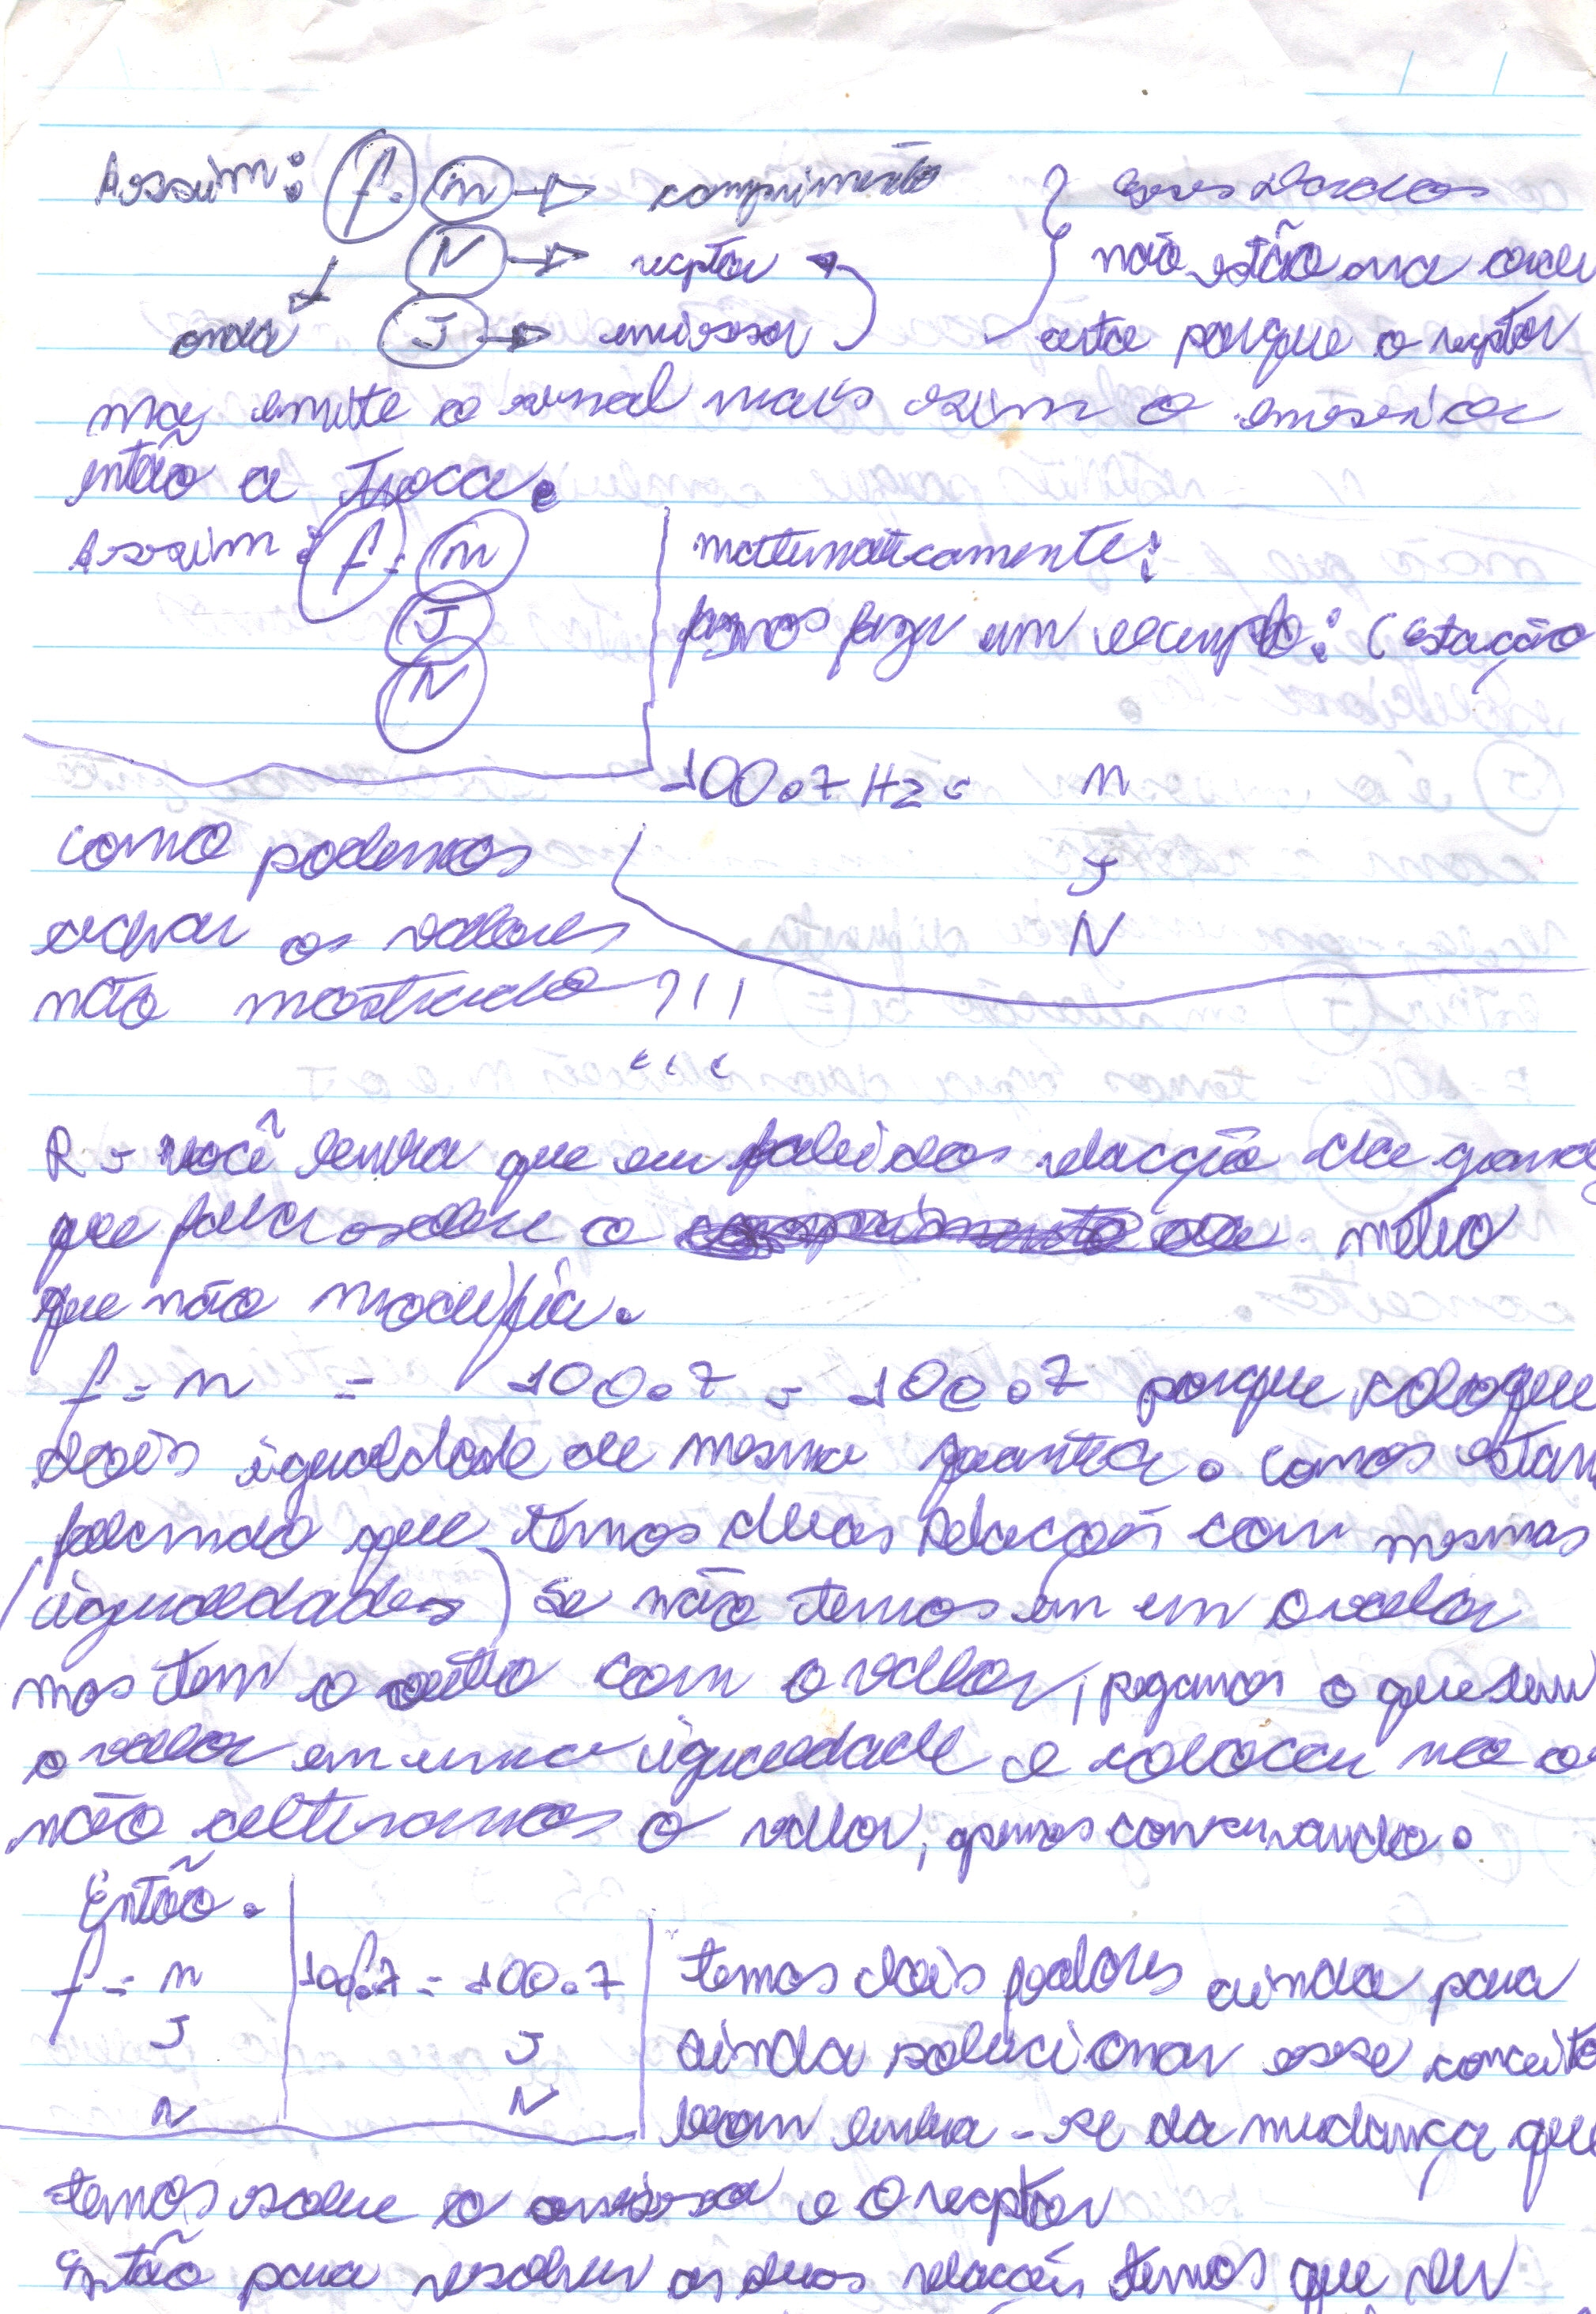 Assim: f = m → comprimento { esses dados
N → reptor não estão na orde
onda J → emissor certa porque o reptor
não emite o sinal mais sim o emissor
então a troca.
Assim: f = m matematicamente:
J vamos fazer um exemplo: (estação
N
100.7 Hz = m
como podemos J
achar os valores N
não mostrado ???
R = você lembra que eu falei dos relacção da grand
que falar sobre o metro
que não modifica.
f = m = 100.7 = 100.7 porque coloque
dois igualdade de mesma grantia. comos estam
falando que temos duas relacões com mesmas
(igualdades) se não temos em um o valor
mos tem o outro com o valor, pegamos o que tem
o valor em uma igualdade e colocar no o
não alteramos o valor, apenas conservando.
Então.
f = m 100.7 = 100.7 temos dois valores ainda para
J J ainda solucionar esse conceito
N N bom lembra-se da mudança que
temos sobre o emissor e o reptor
Então para resolver as duas relacões temos que ver